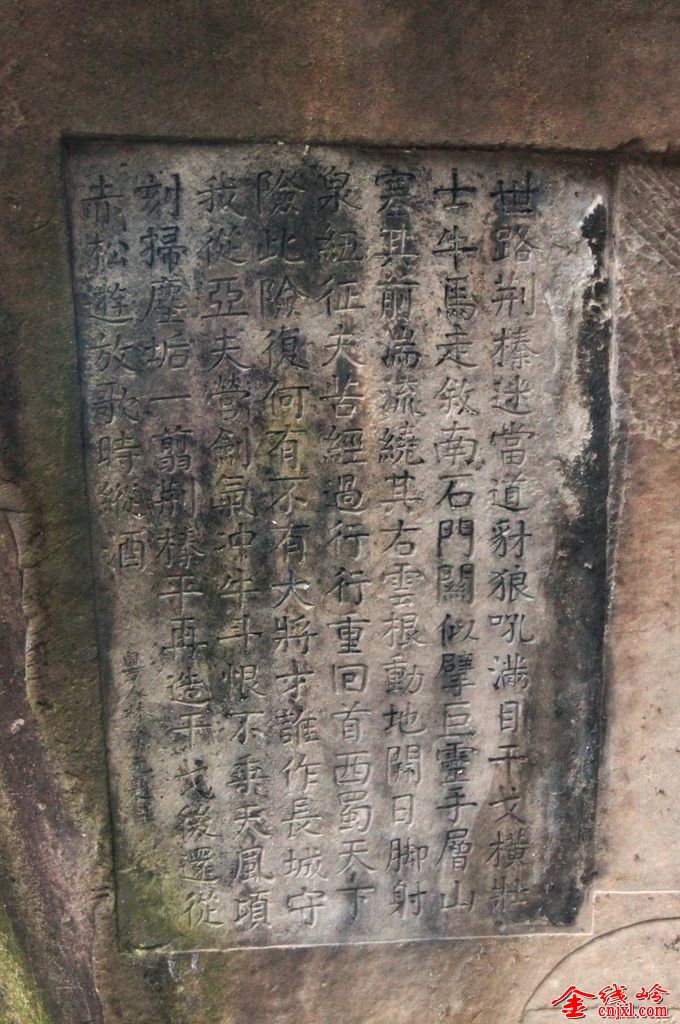 世路荆榛迷當道豺狼吼滿目干戈横壯
士牛馬走敘南石門關似擘巨靈手層山
其前湍流繞其右雲根動地開日脚射
泉紐征夫苦經過行行重回首西蜀天下
險此險復何有不有大將才誰作長城守
我從亞夫營劍氣冲牛斗恨不乘天風頃
刻掃塵垢一翦荆榛平再造干戈後還從
赤松遊放歌時縱酒
粤人林
金线岭
cnjxl.com